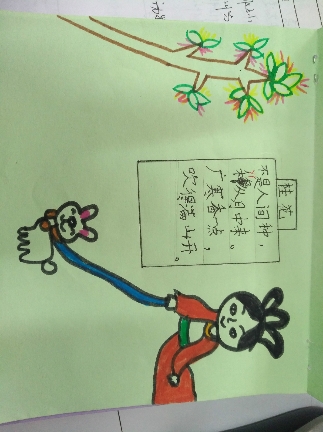 桂花
不是人间种，
移从月中来。
广寒香一点，
吹得满山开。